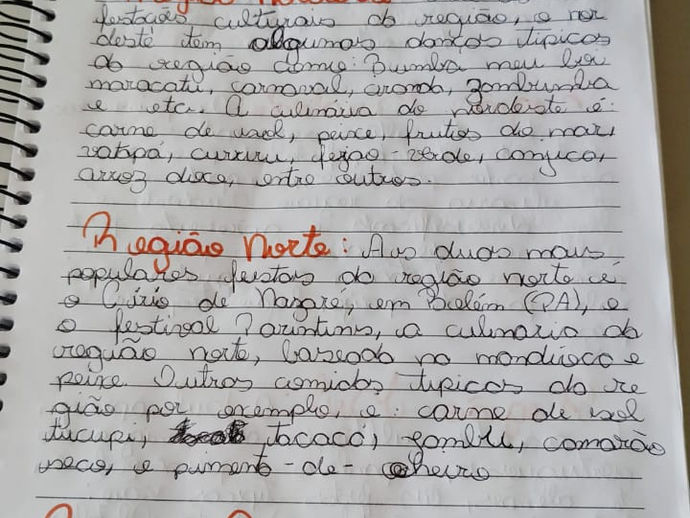 festades culturais da região, o nor
deste tem algumas danças tipicas
da região como: Bumba meu boi
maracatu, carnaval, ciranda, zambumba
e etc. A culinária do nordeste é:
carne de sol, peixe, frutos do mar,
vatapá, cururu, feijao-verde, canjica,
arroz doce, entre outros.
Região Norte: As duas mais
populares festas da região norte é
o Círio de Nazaré, em Belém (PA), e
o festival Parintins, a culinaria da
região norte, baseada na mandioca e
peixe. Outras comidas tipicas da re
gião por exemplo, e: carne de sol
tucupi, tacacá, jambu, camarão
seco, e pimenta-de-cheiro